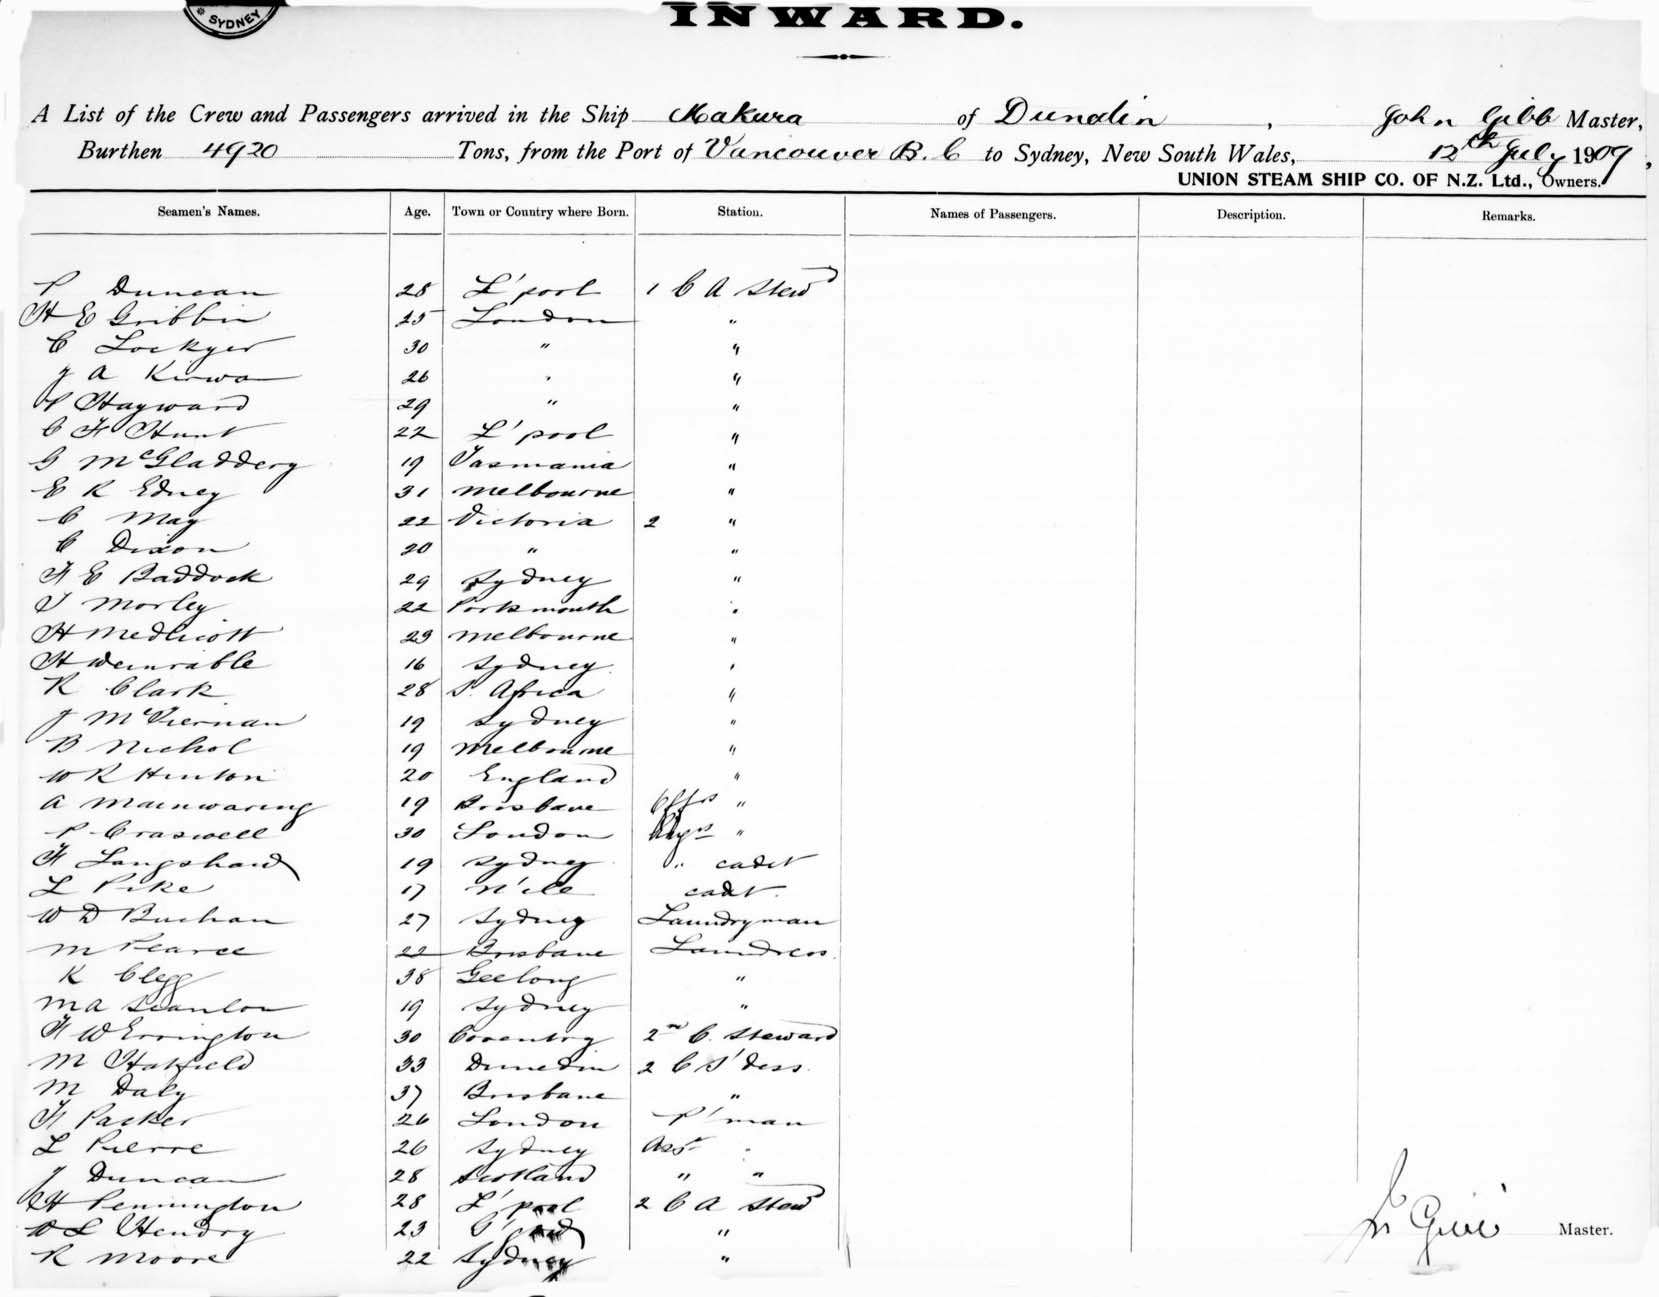 SYDNEY
INWARD.
A List of the Crew and Passengers arrived in the Ship Makura of Dunedin, John Gibb Master,
Burthen 4920 Tons, from the Port of Vancouver B.C to Sydney, New South Wales, 12th July 1909,
UNION STEAM SHIP CO. OF N.Z. Ltd., Owners.
Seamen's Names. Age. Town or Country where Born. Station. Names of Passengers. Description. Remarks.
P Duncan 28 L'pool 1 C A Stewd
H E Gribbin 25 London "
C Lockyer 30 " "
J A Kirwan 26 " "
P Hayward 29 " "
C H Hunt 22 L'pool "
G McGladdery 19 Tasmania "
E R Edney 31 Melbourne "
C May 22 Victoria 2 "
C Dixon 20 " "
H E Baddock 29 Sydney "
T Morley 22 Portsmouth "
H Medlicott 23 Melbourne "
H 16 Sydney "
R Clark 28 S. Africa "
J McTiernan 19 Sydney "
B Nichol 19 Melbourne "
W R Hinton 20 England "
A Mainwaring 19 Brisbane Offrs "
P Craswell 30 London Engrs "
H Langshaw 19 Sydney " cadet
L Pike 17 N'cle cadet.
W D Buchan 27 Sydney Laundryman
M Pearce 22 Brisbane Laundress.
K Clegg 38 Geelong "
M A Scanlon 19 Sydney "
H W Errington 30 Coventry 2nd C. Steward
M Hatfield 33 Dunedin 2 C S'dess.
M Daly 37 Brisbane "
H Packer 26 London P'man
L Pierre 26 Sydney Asst "
J Duncan 28 Scotland " "
H Pennington 28 L'pool 2 C A Stewd
W L Hendry 23 "
R Moore 22 Sydney "
J Gibb Master.